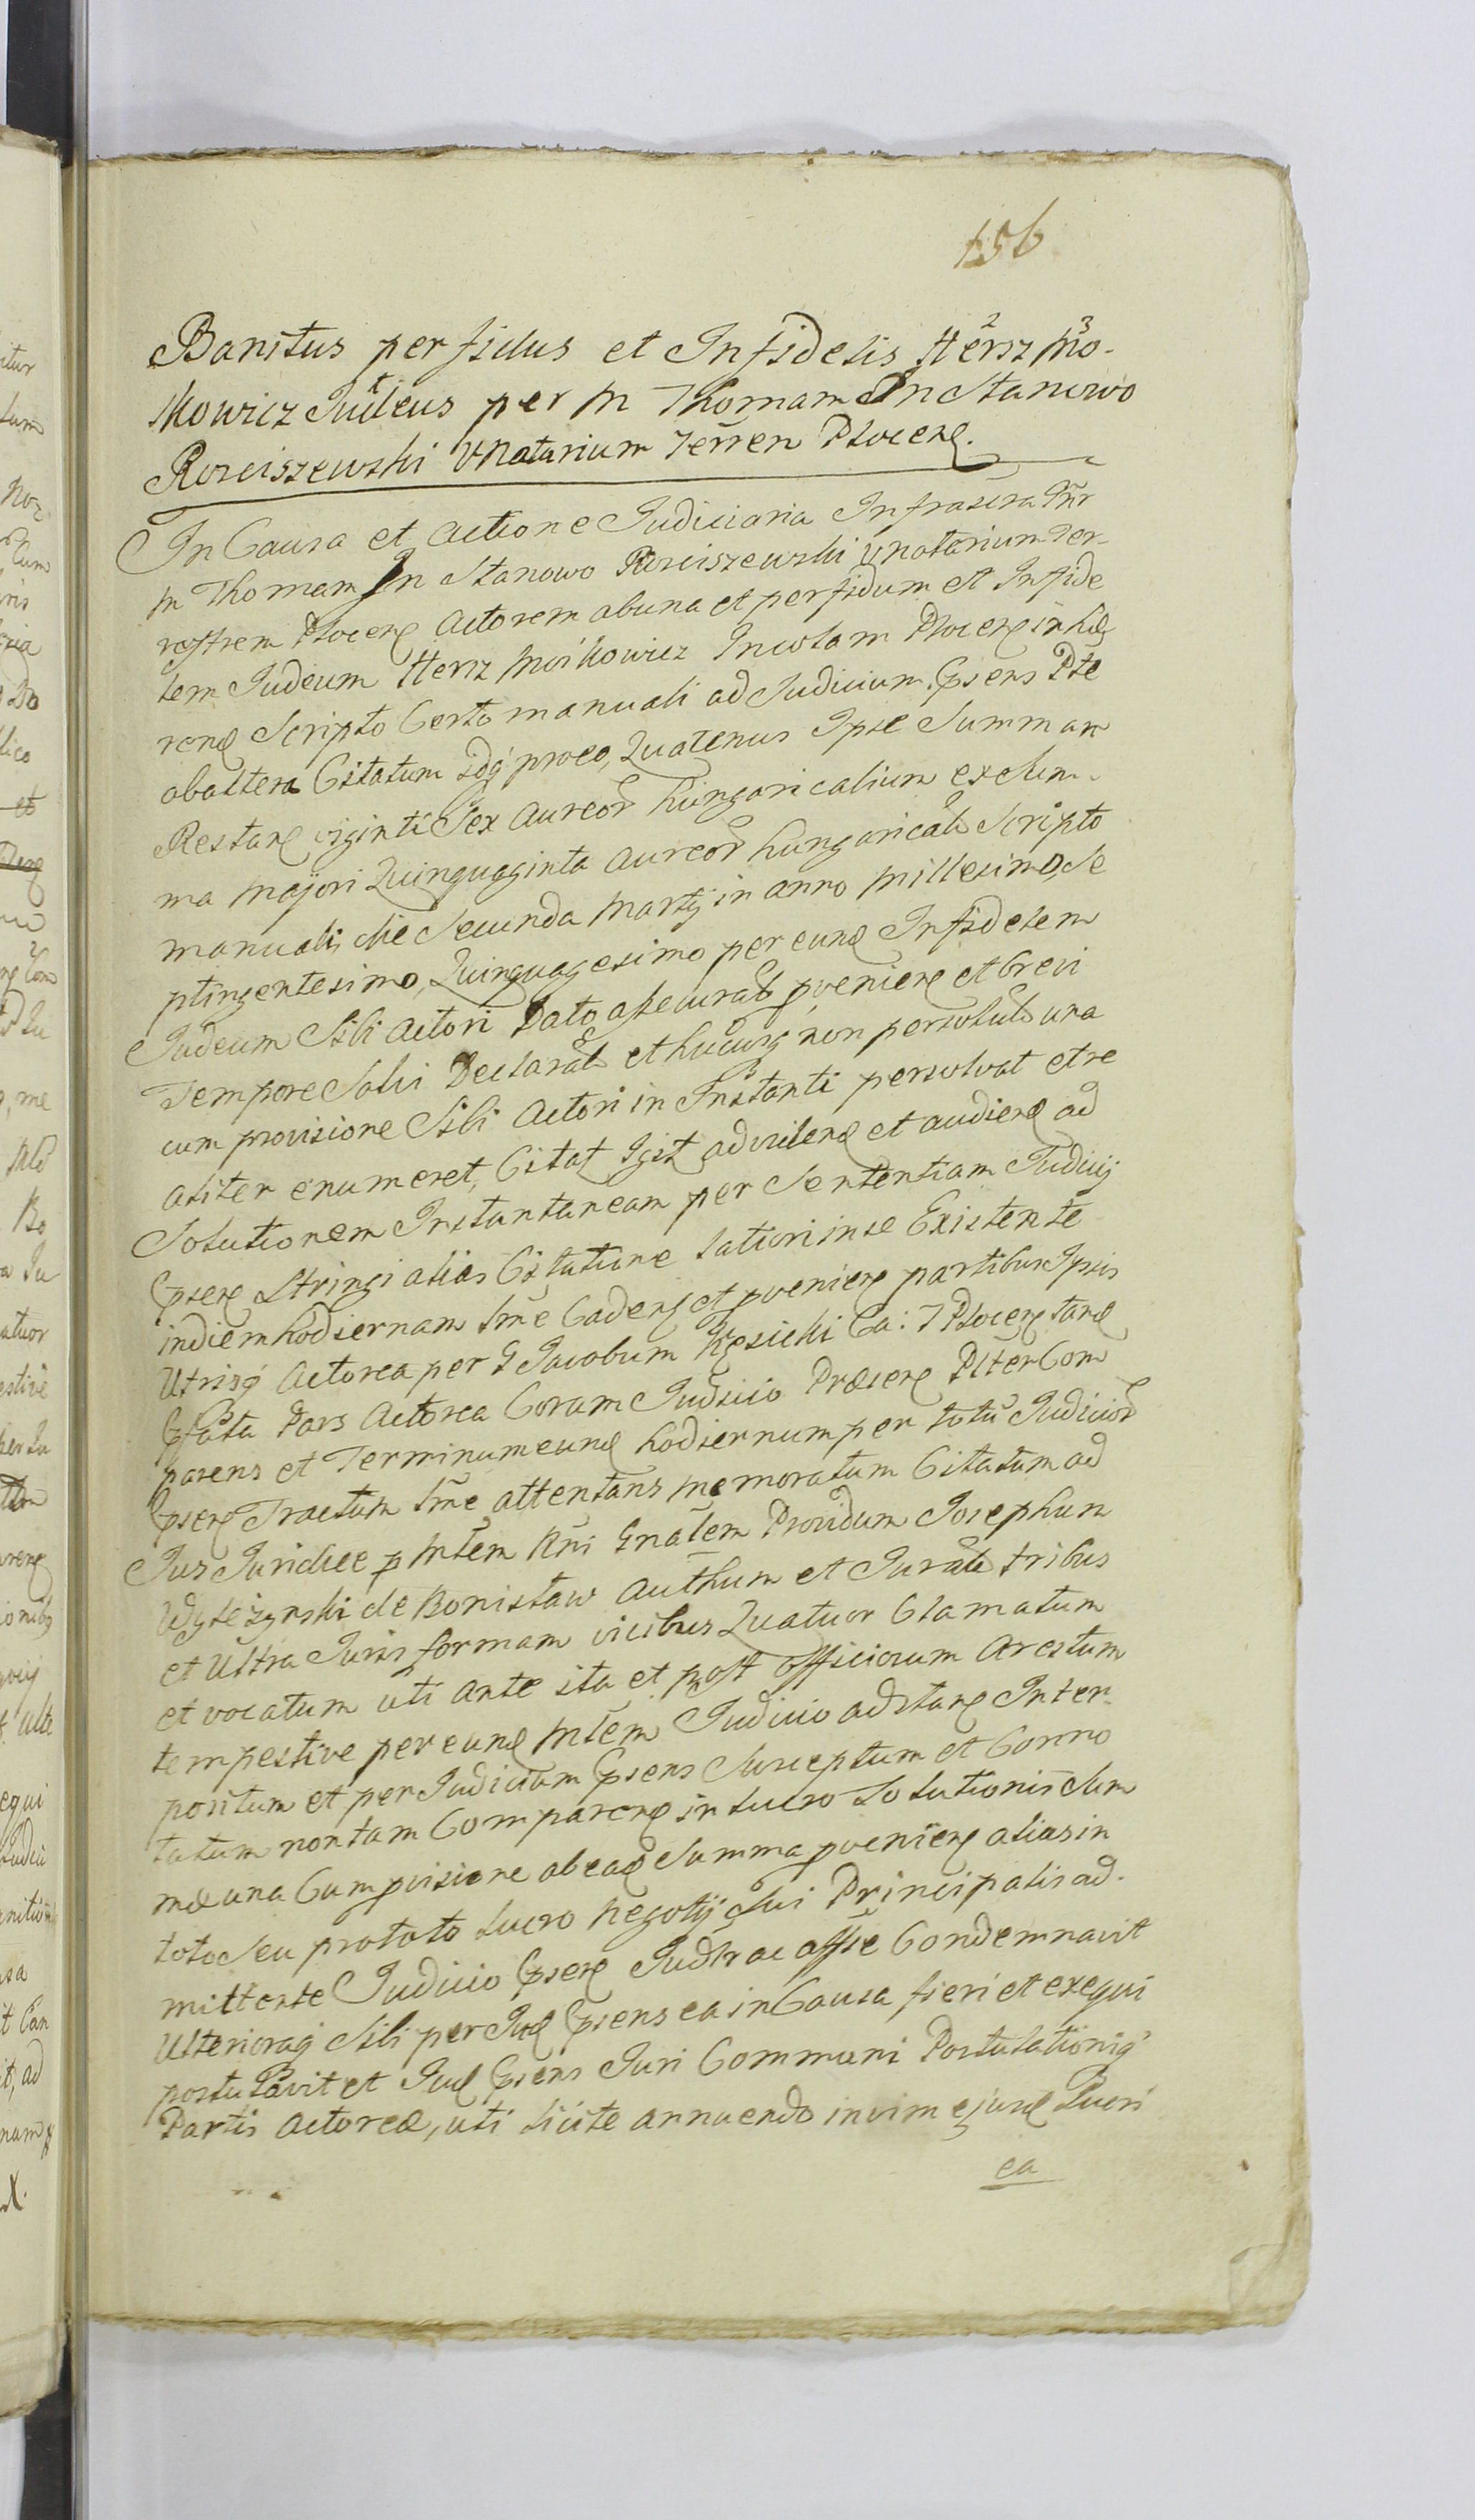 156
Banitus perfidus et Infidelis Hersz Mo-
Mkowicz Judeus per M Thomam In Stanowo
Rosciszewski VNotarium Terren Plocen.
In Causa et Actione Judiciaria Infrascra Intr
M Thomam In Stanowo Rosciszewski VNotarium Ter-
restrem Plocen Actorem ab una et perfidum et Infide
lem Judeum Hersz Moskowicz Incolam Plocen
ren Scripto Certo manuali ad Judicium Cpsens Pte
ab altera Citatum idq proeo, Quatenus Ipse Summam
Restan viginti Sex Aureor hungaricalium ex Sum-
ma Majori Quinquaginta Aureor hungarical Scripto
manuali, die Secunda Martij in Anno Millesimo, Se
ptingentesimo, Quinquagesimo per eund Infidelem
Judeum Sibi Actori Dato assecurat, pvenien et brevi
Tempore Solvi Declarat et hucusq non persolut una
cum provisione Sibi Actori in Instanti persolvat et re
aliter enumeret, Citat Igit ad viden et audien ad
Solutionem Instantaneam per Sententiam Judicij
Cpsen Stringi alias Citatione latiori in se Existente
in diem hodiernam Ime Caden et pvenien partibus Ipsis
Utrisq Actorea per G Jacobum Ca: T Plocen tan
Cpfata Pars Actorea Coram Judicio Præsen Plter Com
parens et Terminum eund hodiernum per totu Judicior
Cpsen Tractum Ime attentans memoratum Citatum ad
Jus Juridice p Mtem Rni Gnalem Providum Josephum
de Bonislaw Authum et Jurat tribus
et Ultra Juris formam vicibus Quatuor Clamatum
et vocatum uti ante ita et post Officiosum Arestum
tempestive per eund Mtem Judicio adstan Inter-
positum et per Judicium Cpsens Susceptum et Conno
tatum non tam Comparen in lucro Solutionis Sum
mæ una Cum pvisione ab ead Summa pvenien alias in
toto Seu pro toto lucro Negotij Sui Principalis ad-
mittente Judicio Cpsen Judlr ac Affse Condemnavit
Ulterioraq Sibi per Jud Cpsens ea in Causa fieri et exequi
postulavit et Jud Cpsens Juri Communi Postulationiq
Partis Actoreæ, uti licite annuendo in vim ejusd Lucri
ea